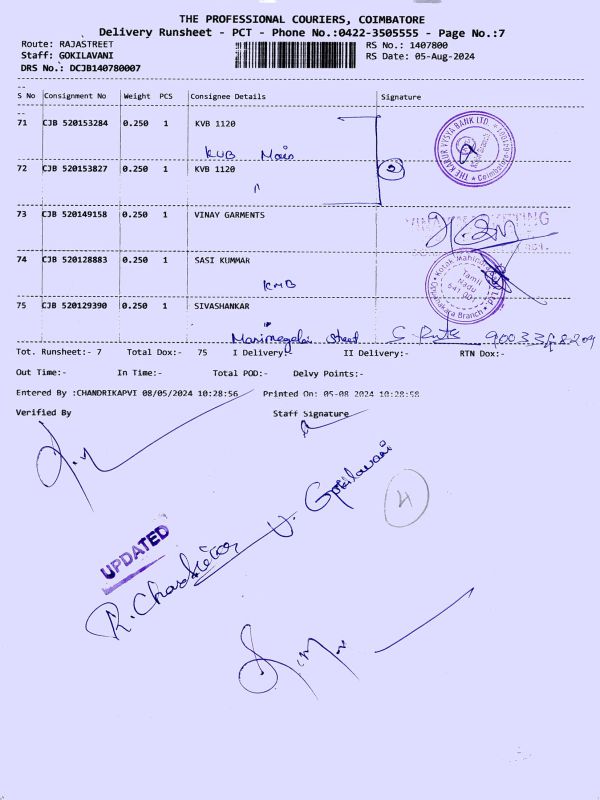 THE PROFESSIONAL COURIERS, COIMBATORE
Delivery Runsheet - PCT - Phone No.:0422-3505555 - Page No.:7
Route: RAJASTREET RS No.: 1407800
Staff: GOKILAVANI RS Date: 05-Aug-2024
DRS No.: DCJB140780007
S No Consignment No Weight PCS Consignee Details Signature
71 CJB 520153284 0.250 1 KVB 1120
KVB Main
72 CJB 520153827 0.250 1 KVB 1120
2
THE KARUR VYSYA BANK LTD
Coimbatore-641001
73 CJB 520149158 0.250 1 VINAY GARMENTS
74 CJB 520128883 0.250 1 SASI KUMMAR
KMB
Kotak Mahindra
Tamil
Nadu
641 001
Oppanakara Branch
75 CJB 520129390 0.250 1 SIVASHANKAR
Street
Tot. Runsheet:- 7 Total Dox:- 75 I Delivery:- II Delivery:- RTN Dox:-
Out Time:- In Time:- Total POD:- Delvy Points:-
Entered By :CHANDRIKAPVI 08/05/2024 10:28:56 Printed On: 05-08 2024 10:28:58
Verified By Staff Signature
V. Gokilavani
4
UPDATED